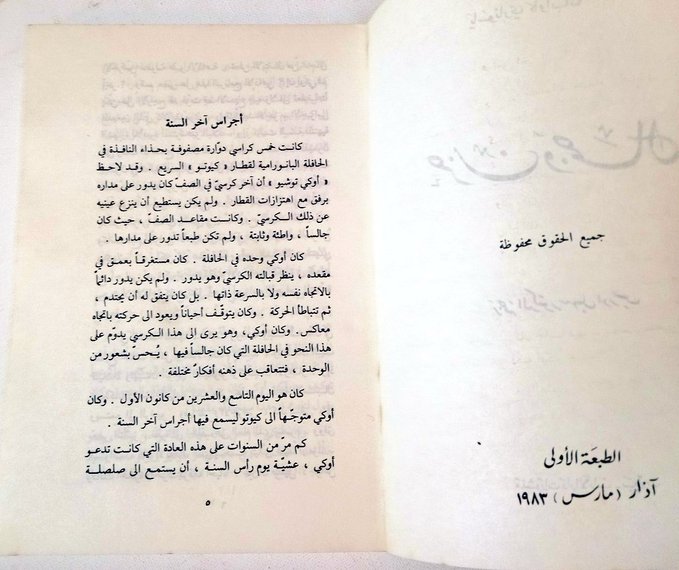 جميع الحقوق محفوظة
الطبعة الأولى
آذار (مارس) ١٩٨٣
أجراس آخر السنة
كانت خمس كراسي دوّارة مصفوفة بحذاء النافذة في
الحافلة البانورامية لقطار « كيوتو » السريع . وقد لاحظ
« أوكي توشيو » أن آخر كرسيّ في الصفّ كان يدور على مداره
برفق مع اهتزازات القطار . ولم يكن يستطيع أن ينزع عينيه
عن ذلك الكرسيّ . وكانت مقاعد الصفّ ، حيث كان
جالساً ، واطئة وثابتة ، ولم تكن طبعاً تدور على مدارها .
كان أوكي وحده في الحافلة . كان مستغرقاً بعمق في
مقعده ، ينظر قبالته الكرسيّ وهو يدور . ولم يكن يدور دائماً
بالاتجاه نفسه ولا بالسرعة ذاتها . بل كان يتفق له أن يحتدم ،
ثم تتباطأ الحركة . وكان يتوقّف أحياناً ويعود الى حركته باتجاه
معاكس . وكان أوكي، وهو يرى الى هذا الكرسي يدوّم على
هذا النحو في الحافلة التي كان جالساً فيها ، يُحسّ بشعور من
الوحدة ، فتتعاقب على ذهنه أفكارٌ مختلفة .
كان هو اليوم التاسع والعشرين من كانون الأول . وكان
أوكي متوجّهاً الى كيوتو ليسمع فيها أجراس آخر السنة .
كم مرّ من السنوات على هذه العادة التي كانت تدعو
أوكي ، عشيّة يوم رأس السنة ، أن يستمع الى صلصلة
٥